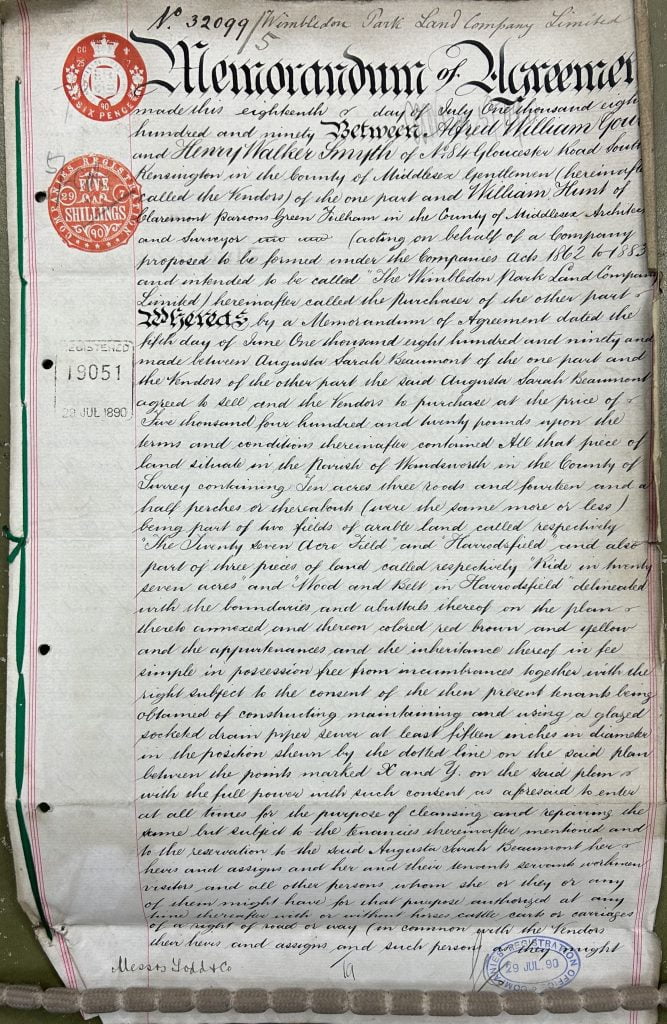 No. 32099/Wimbledon Park Land Company Limited
5
Memorandum of Agreemen
made this eighteenth day of July One thousand eigh
hundred and ninety Between Alfred William
and Henry Walker Smyth of No. 84 Gloucester Road South
Kensington in the County of Middlesex Gentlemen (hereinafte
called the Vendors) of the one part and William Hunt of
Claremont Parsons Green Fulham in the County of Middlesex Architec
and Surveyor (acting on behalf of a Company
proposed to be formed under the Companies Acts 1862 to 1883
and intended to be called "The Wimbledon Park Land Company
Limited) hereinafter called the Purchaser of the other part
Whereas by a Memorandum of Agreement dated the
fifth day of June One thousand eight hundred and ninety and
made between Augusta Sarah Beaumont of the one part and
the Vendors of the other part the said Augusta Sarah Beaumont
agreed to sell and the Vendors to purchase at the price of
Five thousand four hundred and twenty pounds upon the
terms and conditions thereinafter contained All that piece of
land situate in the Parish of Wandsworth in the County of
Surrey containing Ten acres three roods and fourteen and a
half perches or thereabouts (were the same more or less)
being part of two fields of arable land called respectively
"The Twenty seven Acre Field" and "Harrodsfield" and also
part of three pieces of land called respectively "Ride in twenty
seven acres" and "Wood and Belt in Harrodsfield" delineated
with the boundaries and abuttals thereof on the plan
thereto annexed and thereon colored red brown and yellow
and the appurtenances and the inheritance thereof in fee
simple in possession free from incumbrances together with the
right subject to the consent of the then present tenants being
obtained of constructing maintaining and using a glazed
socketed drain pipe sewer at least fifteen inches in diameter
in the position shewn by the dotted line on the said plan
between the points marked X and Y. on the said plan
with the full power with such consent as aforesaid to enter
at all times for the purpose of cleansing and repairing the
same but subject to the tenancies thereinafter mentioned and
to the reservation to the said Augusta Sarah Beaumont her
heirs and assigns and her and their tenants servants workmen
visitors and all other persons whom she or they or any
of them might have for that purpose authorized at any
time thereafter with or without horses cattle carts or carriages
of a right of road or way (in common with the Vendors
their heirs and assigns and such persons as they might
Messrs Todd & Co
SIX PENCE
90
COMPANIES REGISTRATION
29 7
FIVE
SHILLINGS
90
REGISTERED
19051
29 JUL 1890
COMPANIES REGISTRATION OFFICE
29 JUL. 90